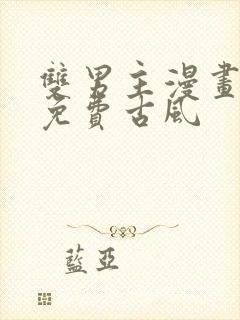 雙男主漫畫
免費古風
藍亞